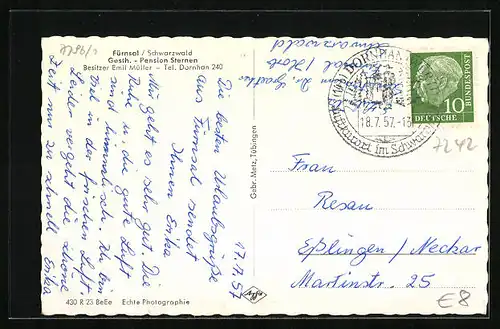 7786/1
Fürnsal / Schwarzwald
Gasth. - Pension Sternen
Besitzer Emil Müller — Tel. Dornhan 240
17.7.57
Die besten Urlaubsgrüße
aus Fürnsal sendet
Ihnen Erika
Mir geht es sehr gut. Die
Ruhe u. die gute Luft
sind himmlisch. Ich bin
viel in der frischen Luft.
Leider vergeht die schöne
Zeit nur zu schnell Erika
430 R 23 BeEe Echte Photographie
Gebr. Metz, Tübingen
Schwarzwald
DORNHAN
18.7.57.-18
Luftkurort im Schwarzwald
DEUTSCHE BUNDESPOST
10
7242
Frau
Resau
Eßlingen / Neckar
Martinstr. 25
€8